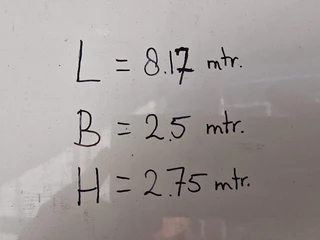 L = 8.17 mtr.
B = 2.5 mtr.
H = 2.75 mtr.